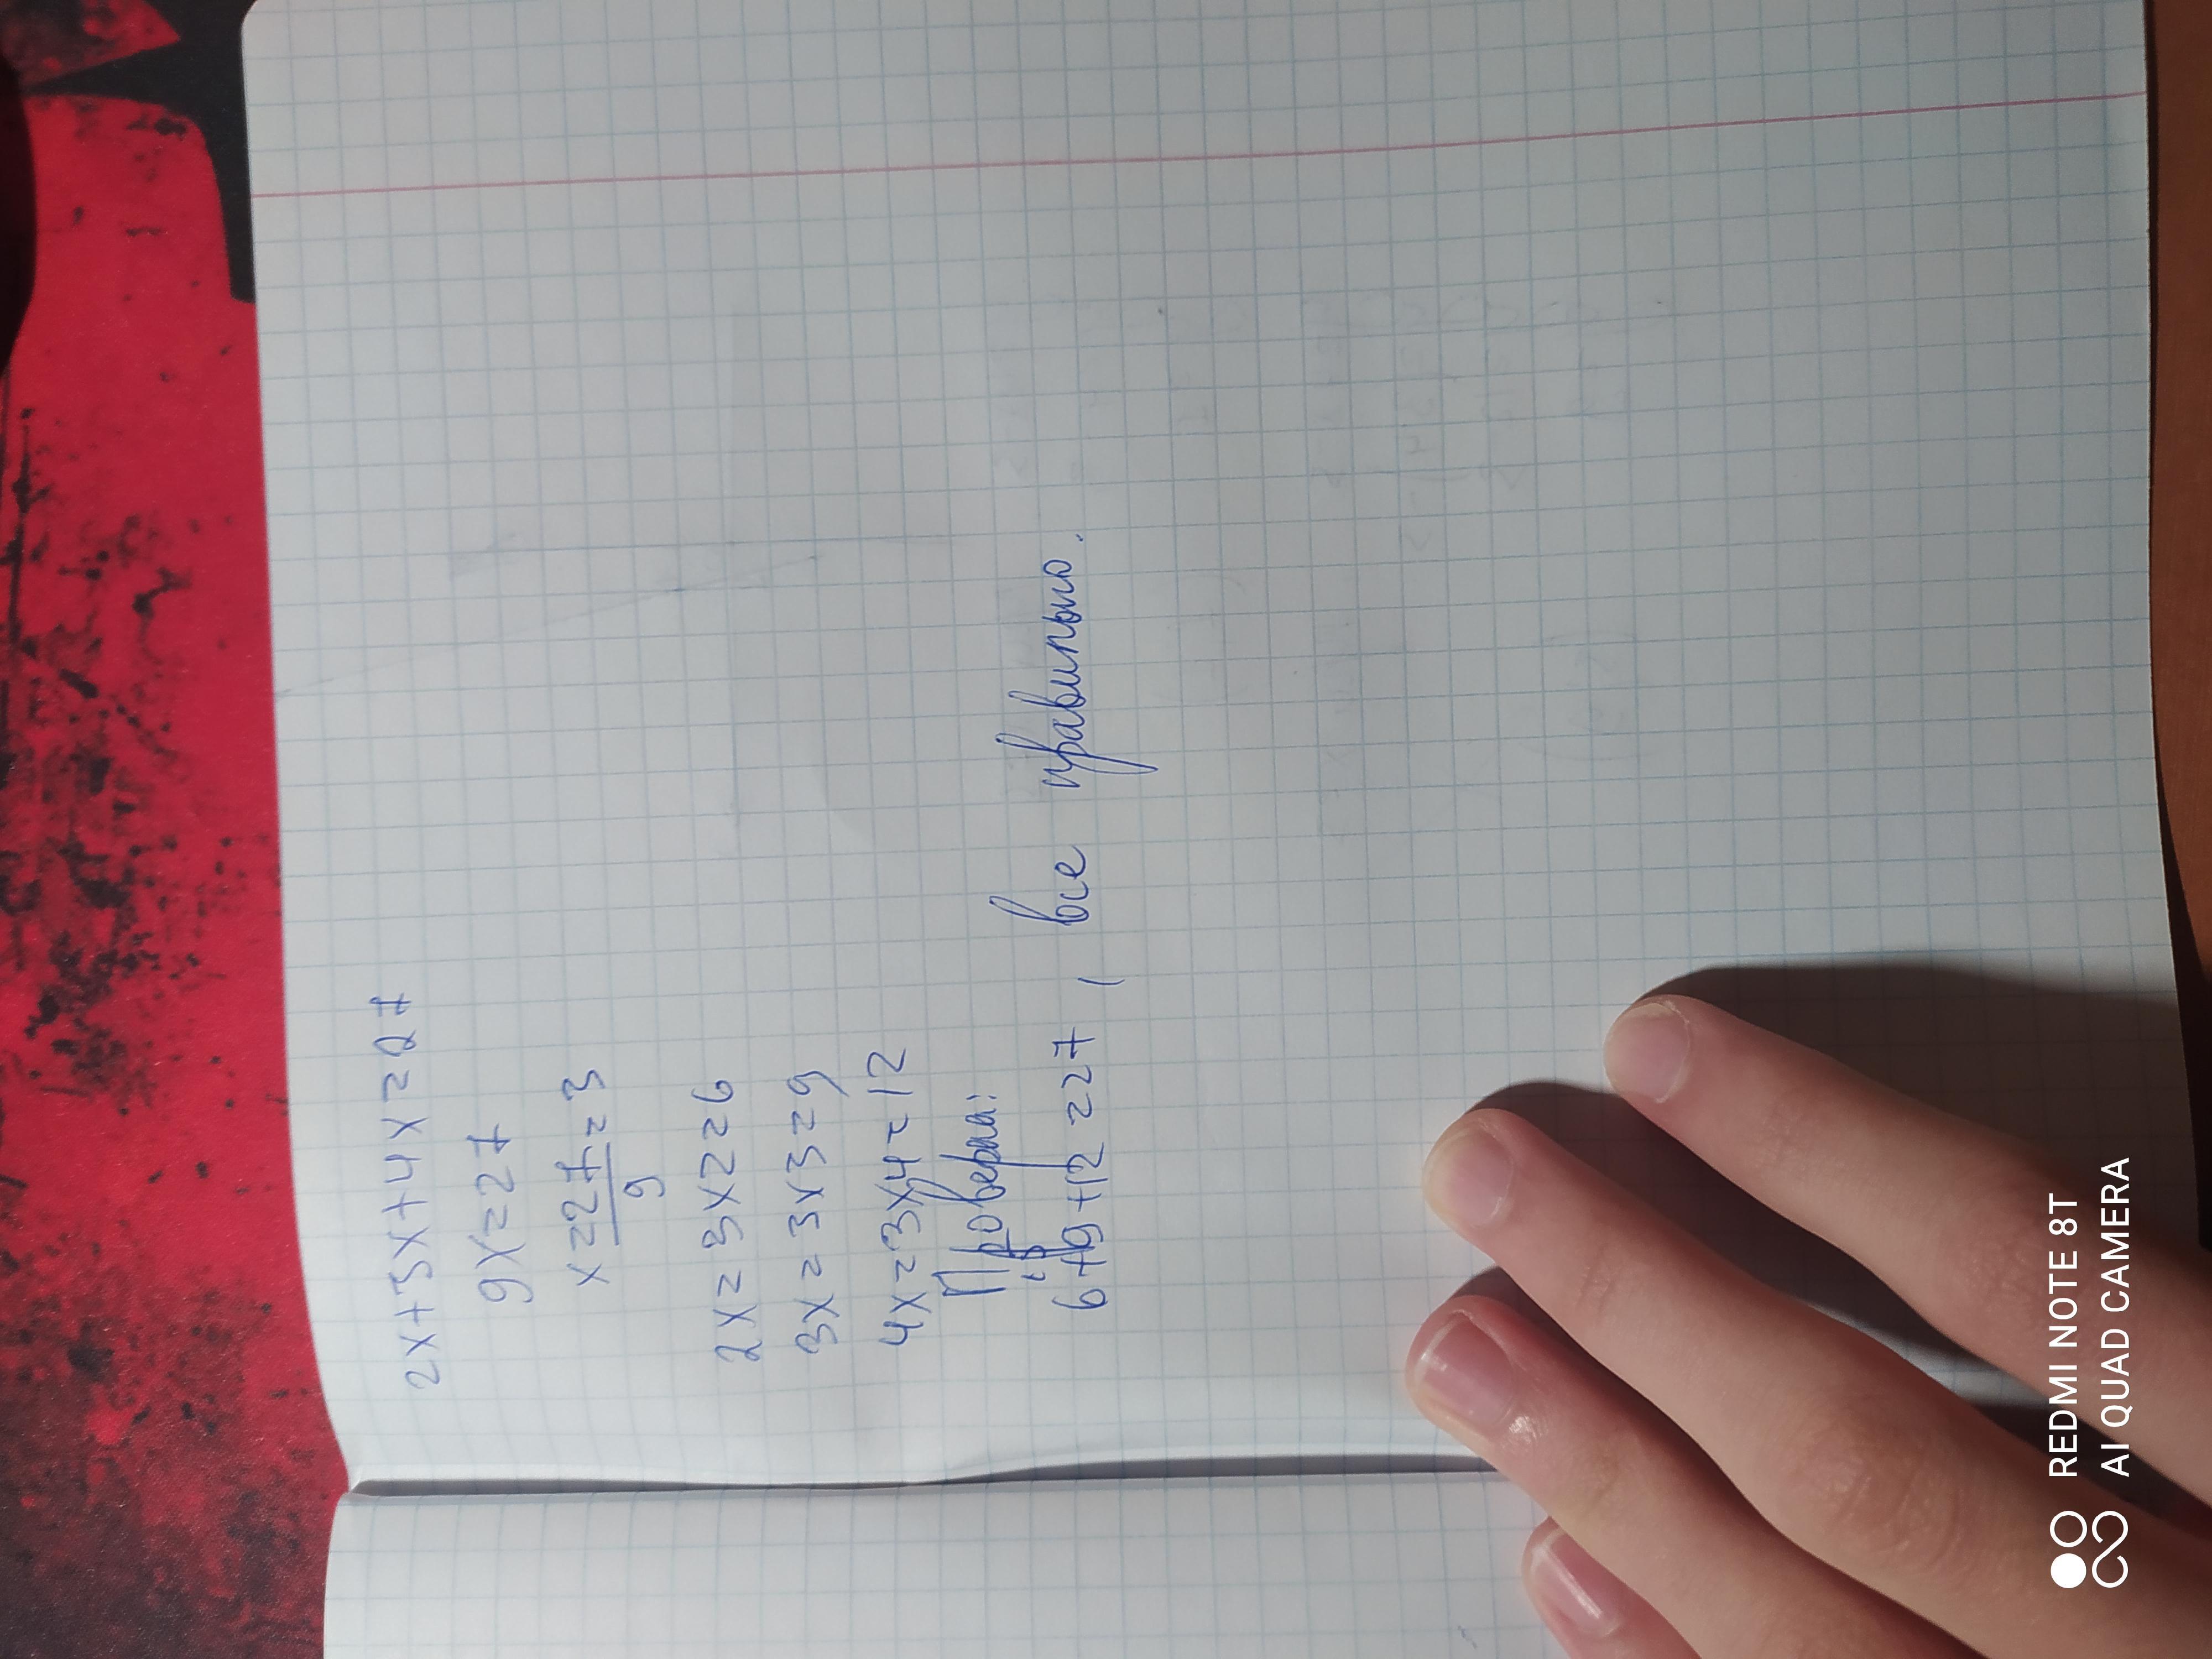 2x+3x+4x=27
9x=27
x=27/9=3
2x=3x2=6
3x=3x3=9
4x=3x4=12
Проверка:
15
6+9+12=27, все правильно.
REDMI NOTE 8T
AI QUAD CAMERA